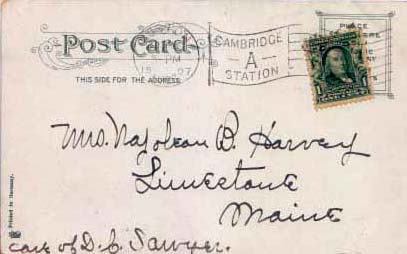 Post Card
THIS SIDE FOR THE ADDRESS
PM
CAMBRIDGE
A
STATION
PLACE
1
Mrs. Napoleon B. Harvey
Limestone
Maine
care of D. C. Sawyer.
Printed in Germany.